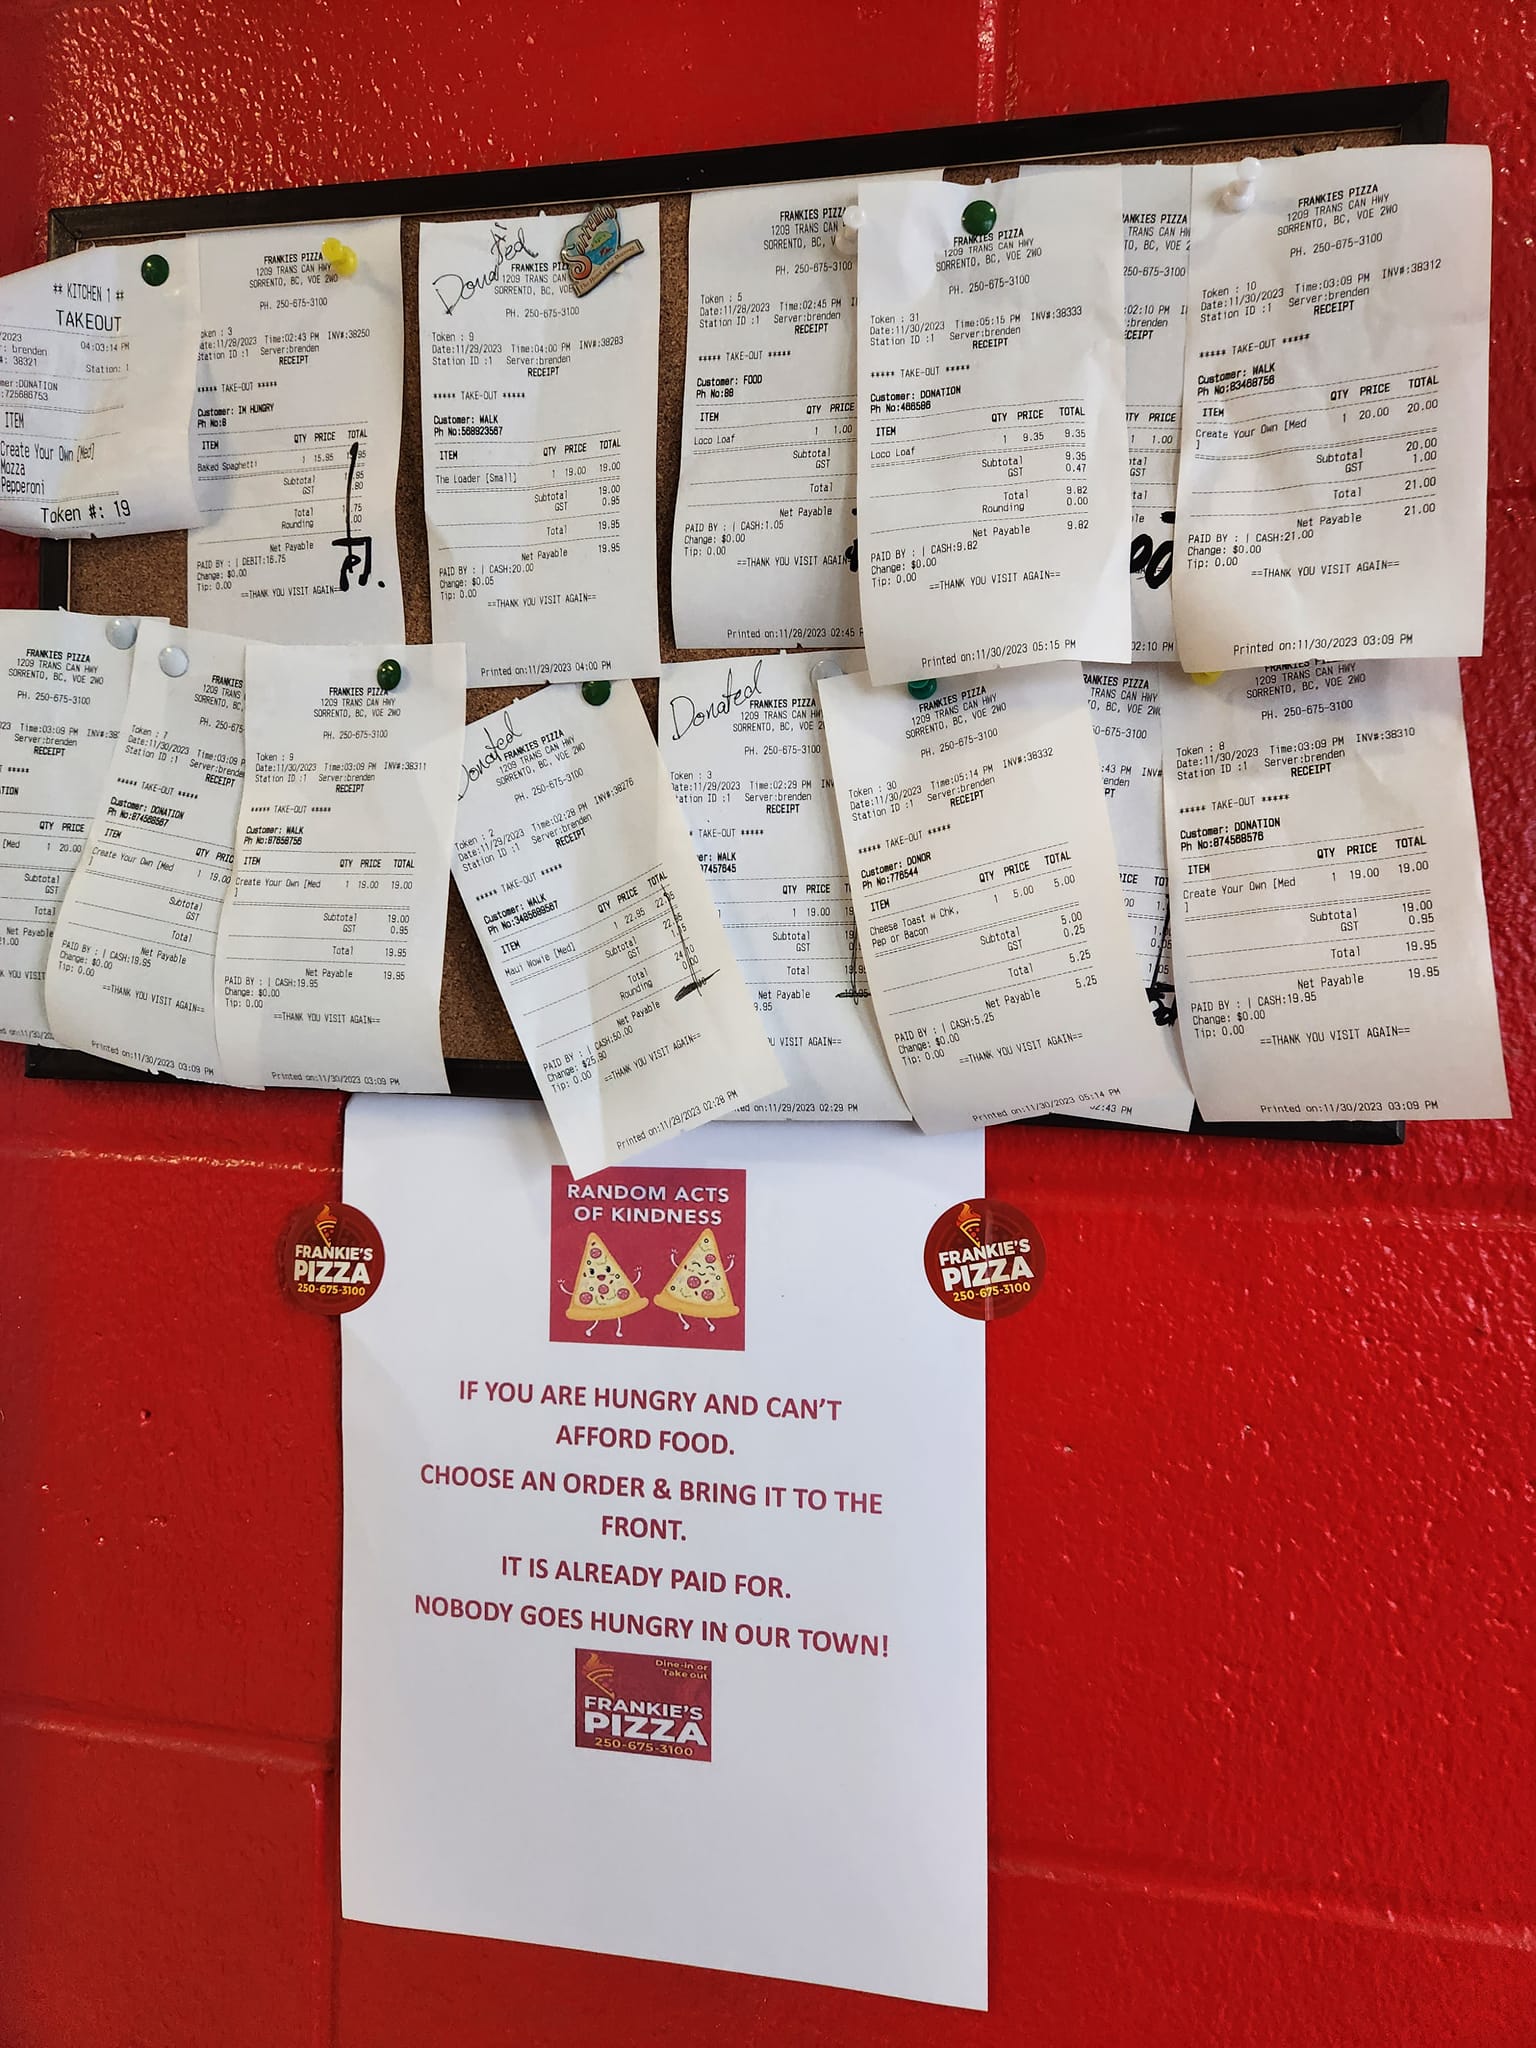 ** KITCHEN 1 **
TAKEOUT
/2023 04:03:14 PM
: brenden
#: 38321 Station: 1
mer:DONATION
:725686753
ITEM
Create Your Own [Med]
Mozza
Pepperoni
Token #: 19
FRANKIES PIZZA
1209 TRANS CAN HWY
SORRENTO, BC, VOE 2WO
PH. 250-675-3100
Token : 3
Date:11/28/2023 Time:02:43 PM INV#:38250
Station ID :1 Server:brenden
RECEIPT
***** TAKE-OUT *****
Customer: IM HUNGRY
Ph No:8
ITEM QTY PRICE TOTAL
Baked Spaghetti 1 15.95
Subtotal
GST
Total
Rounding
Net Payable
PAID BY : | DEBIT:16.75
Change: $0.00
Tip: 0.00
==THANK YOU VISIT AGAIN==
Donated
FRANKIES PIZ
1209 TRANS CAN
SORRENTO, BC, VOE
PH. 250-675-3100
Sorrento
Token : 9
Date:11/29/2023 Time:04:00 PM INV#:38283
Station ID :1 Server:brenden
RECEIPT
***** TAKE-OUT *****
Customer: WALK
Ph No:568923567
ITEM QTY PRICE TOTAL
The Loader [Small] 1 19.00 19.00
Subtotal 19.00
GST 0.95
Total 19.95
Net Payable 19.95
PAID BY : | CASH:20.00
Change: $0.05
Tip: 0.00
==THANK YOU VISIT AGAIN==
Printed on:11/29/2023 04:00 PM
FRANKIES PIZZ
1209 TRANS CAN
SORRENTO, BC, V
PH. 250-675-3100
Token : 5
Date:11/28/2023 Time:02:45 PM
Station ID :1 Server:brenden
RECEIPT
***** TAKE-OUT *****
Customer: FOOD
Ph No:88
ITEM QTY PRICE
Loco Loaf 1 1.00
Subtotal
GST
Total
Net Payable
PAID BY : | CASH:1.05
Change: $0.00
Tip: 0.00
==THANK YOU VISIT AGAIN
Printed on:11/28/2023 02:45 P
FRANKIES PIZZA
1209 TRANS CAN HWY
SORRENTO, BC, VOE 2WO
PH. 250-675-3100
Token : 31
Date:11/30/2023 Time:05:15 PM INV#:38333
Station ID :1 Server:brenden
RECEIPT
***** TAKE-OUT *****
Customer: DONATION
Ph No:466586
ITEM QTY PRICE TOTAL
Loco Loaf 1 9.35 9.35
Subtotal 9.35
GST 0.47
Total 9.82
Rounding 0.00
Net Payable 9.82
PAID BY : | CASH:9.82
Change: $0.00
Tip: 0.00
==THANK YOU VISIT AGAIN==
Printed on:11/30/2023 05:15 PM
KIES PIZZA
TRANS CAN HW
TO, BC, VOE 2
250-675-3100
:02:10 PM
1 1.00
02:10 PM
FRANKIES PIZZA
1209 TRANS CAN HWY
SORRENTO, BC, VOE 2WO
PH. 250-675-3100
Token : 10
Date:11/30/2023 Time:03:09 PM INV#:38312
Station ID :1 Server:brenden
RECEIPT
***** TAKE-OUT *****
Customer: WALK
Ph No:83468756
ITEM QTY PRICE TOTAL
Create Your Own [Med 1 20.00 20.00
]
Subtotal 20.00
GST 1.00
Total 21.00
Net Payable 21.00
PAID BY : | CASH:21.00
Change: $0.00
Tip: 0.00
==THANK YOU VISIT AGAIN==
Printed on:11/30/2023 03:09 PM
FRANKIES PIZZA
1209 TRANS CAN HWY
SORRENTO, BC, VOE 2WO
PH. 250-675-3100
23 Time:03:09 PM INV#:38
Server:brenden
RECEIPT
*****
TION
QTY PRICE
[Med 1 20.00
Subtotal
GST
Total
Net Payable
21.00
K YOU VISIT
FRANKIES
1209 TRANS
SORRENTO,
PH. 250-675
Token : 7
Date:11/30/2023 Time:03:09 P
Station ID :1 Server:brende
RECEIPT
***** TAKE-OUT *****
Customer: DONATION
Ph No:874566567
ITEM QTY PRIC
Create Your Own [Med 1 19.00
]
Subtotal
GST
Total
Net Payable
PAID BY : | CASH:19.95
Change: $0.00
Tip: 0.00
==THANK YOU VISIT AGAIN==
Printed on:11/30/2023 03:09 PM
FRANKIES PIZZA
1209 TRANS CAN HWY
SORRENTO, BC, VOE 2WO
PH. 250-675-3100
Token : 9
Date:11/30/2023 Time:03:09 PM INV#:38311
Station ID :1 Server:brenden
RECEIPT
***** TAKE-OUT *****
Customer: WALK
Ph No:87658756
ITEM QTY PRICE TOTAL
Create Your Own [Med 1 19.00 19.00
]
Subtotal 19.00
GST 0.95
Total 19.95
Net Payable 19.95
PAID BY : | CASH:19.95
Change: $0.00
Tip: 0.00
==THANK YOU VISIT AGAIN==
Printed on:11/30/2023 03:09 PM
Donated
FRANKIES PIZZA
1209 TRANS CAN HWY
SORRENTO, BC, VOE 2WO
PH. 250-675-3100
Token : 2
Date:11/29/2023 Time:02:28 PM INV#:38276
Station ID :1 Server:brenden
RECEIPT
***** TAKE-OUT *****
Customer: WALK
Ph No:3485689567
ITEM QTY PRICE TOTAL
Maui Wowie [Med] 1 22.95
Subtotal
GST
Total
Rounding 0.00
Net Payable
PAID BY : | CASH:50.00
Change: $25.90
Tip: 0.00
==THANK YOU VISIT AGAIN==
Printed on:11/29/2023 02:28 PM
Donated
FRANKIES PIZZ
1209 TRANS CAN HW
SORRENTO, BC, VOE
PH. 250-675-3100
Token : 3
Date:11/29/2023 Time:02:29 PM
Station ID :1 Server:brenden
RECEIPT
TAKE-OUT *****
WALK
97457645
QTY PRICE
1 19.00
Subtotal
GST
Total 19.95
Net Payable 19.95
9.95
OU VISIT AGAIN==
on:11/29/2023 02:29 PM
FRANKIES PIZZA
1209 TRANS CAN HWY
SORRENTO, BC, VOE 2WO
PH. 250-675-3100
Token : 30
Date:11/30/2023 Time:05:14 PM INV#:38332
Station ID :1 Server:brenden
RECEIPT
***** TAKE-OUT *****
Customer: DONOR
Ph No:776544
ITEM QTY PRICE TOTAL
Cheese Toast w Chk, 1 5.00 5.00
Pep or Bacon
Subtotal 5.00
GST 0.25
Total 5.25
Net Payable 5.25
PAID BY : | CASH:5.25
Change: $0.00
Tip: 0.00
==THANK YOU VISIT AGAIN==
Printed on:11/30/2023 05:14 PM
ES PIZZA
NS CAN HWY
BC, VOE 2W
-675-3100
:43 PM INV#
1.05
02:43 PM
FRANKIES PIZZA
1209 TRANS CAN HWY
SORRENTO, BC, VOE 2WO
PH. 250-675-3100
Token : 8
Date:11/30/2023 Time:03:09 PM INV#:38310
Station ID :1 Server:brenden
RECEIPT
***** TAKE-OUT *****
Customer: DONATION
Ph No:874568576
ITEM QTY PRICE TOTAL
Create Your Own [Med 1 19.00 19.00
]
Subtotal 19.00
GST 0.95
Total 19.95
Net Payable 19.95
PAID BY : | CASH:19.95
Change: $0.00
Tip: 0.00
==THANK YOU VISIT AGAIN==
Printed on:11/30/2023 03:09 PM
RANDOM ACTS
OF KINDNESS
FRANKIE'S
PIZZA
250-675-3100
FRANKIE'S
PIZZA
250-675-3100
IF YOU ARE HUNGRY AND CAN'T
AFFORD FOOD.
CHOOSE AN ORDER & BRING IT TO THE
FRONT.
IT IS ALREADY PAID FOR.
NOBODY GOES HUNGRY IN OUR TOWN!
Dine-in or
Take out
FRANKIE'S
PIZZA
250-675-3100